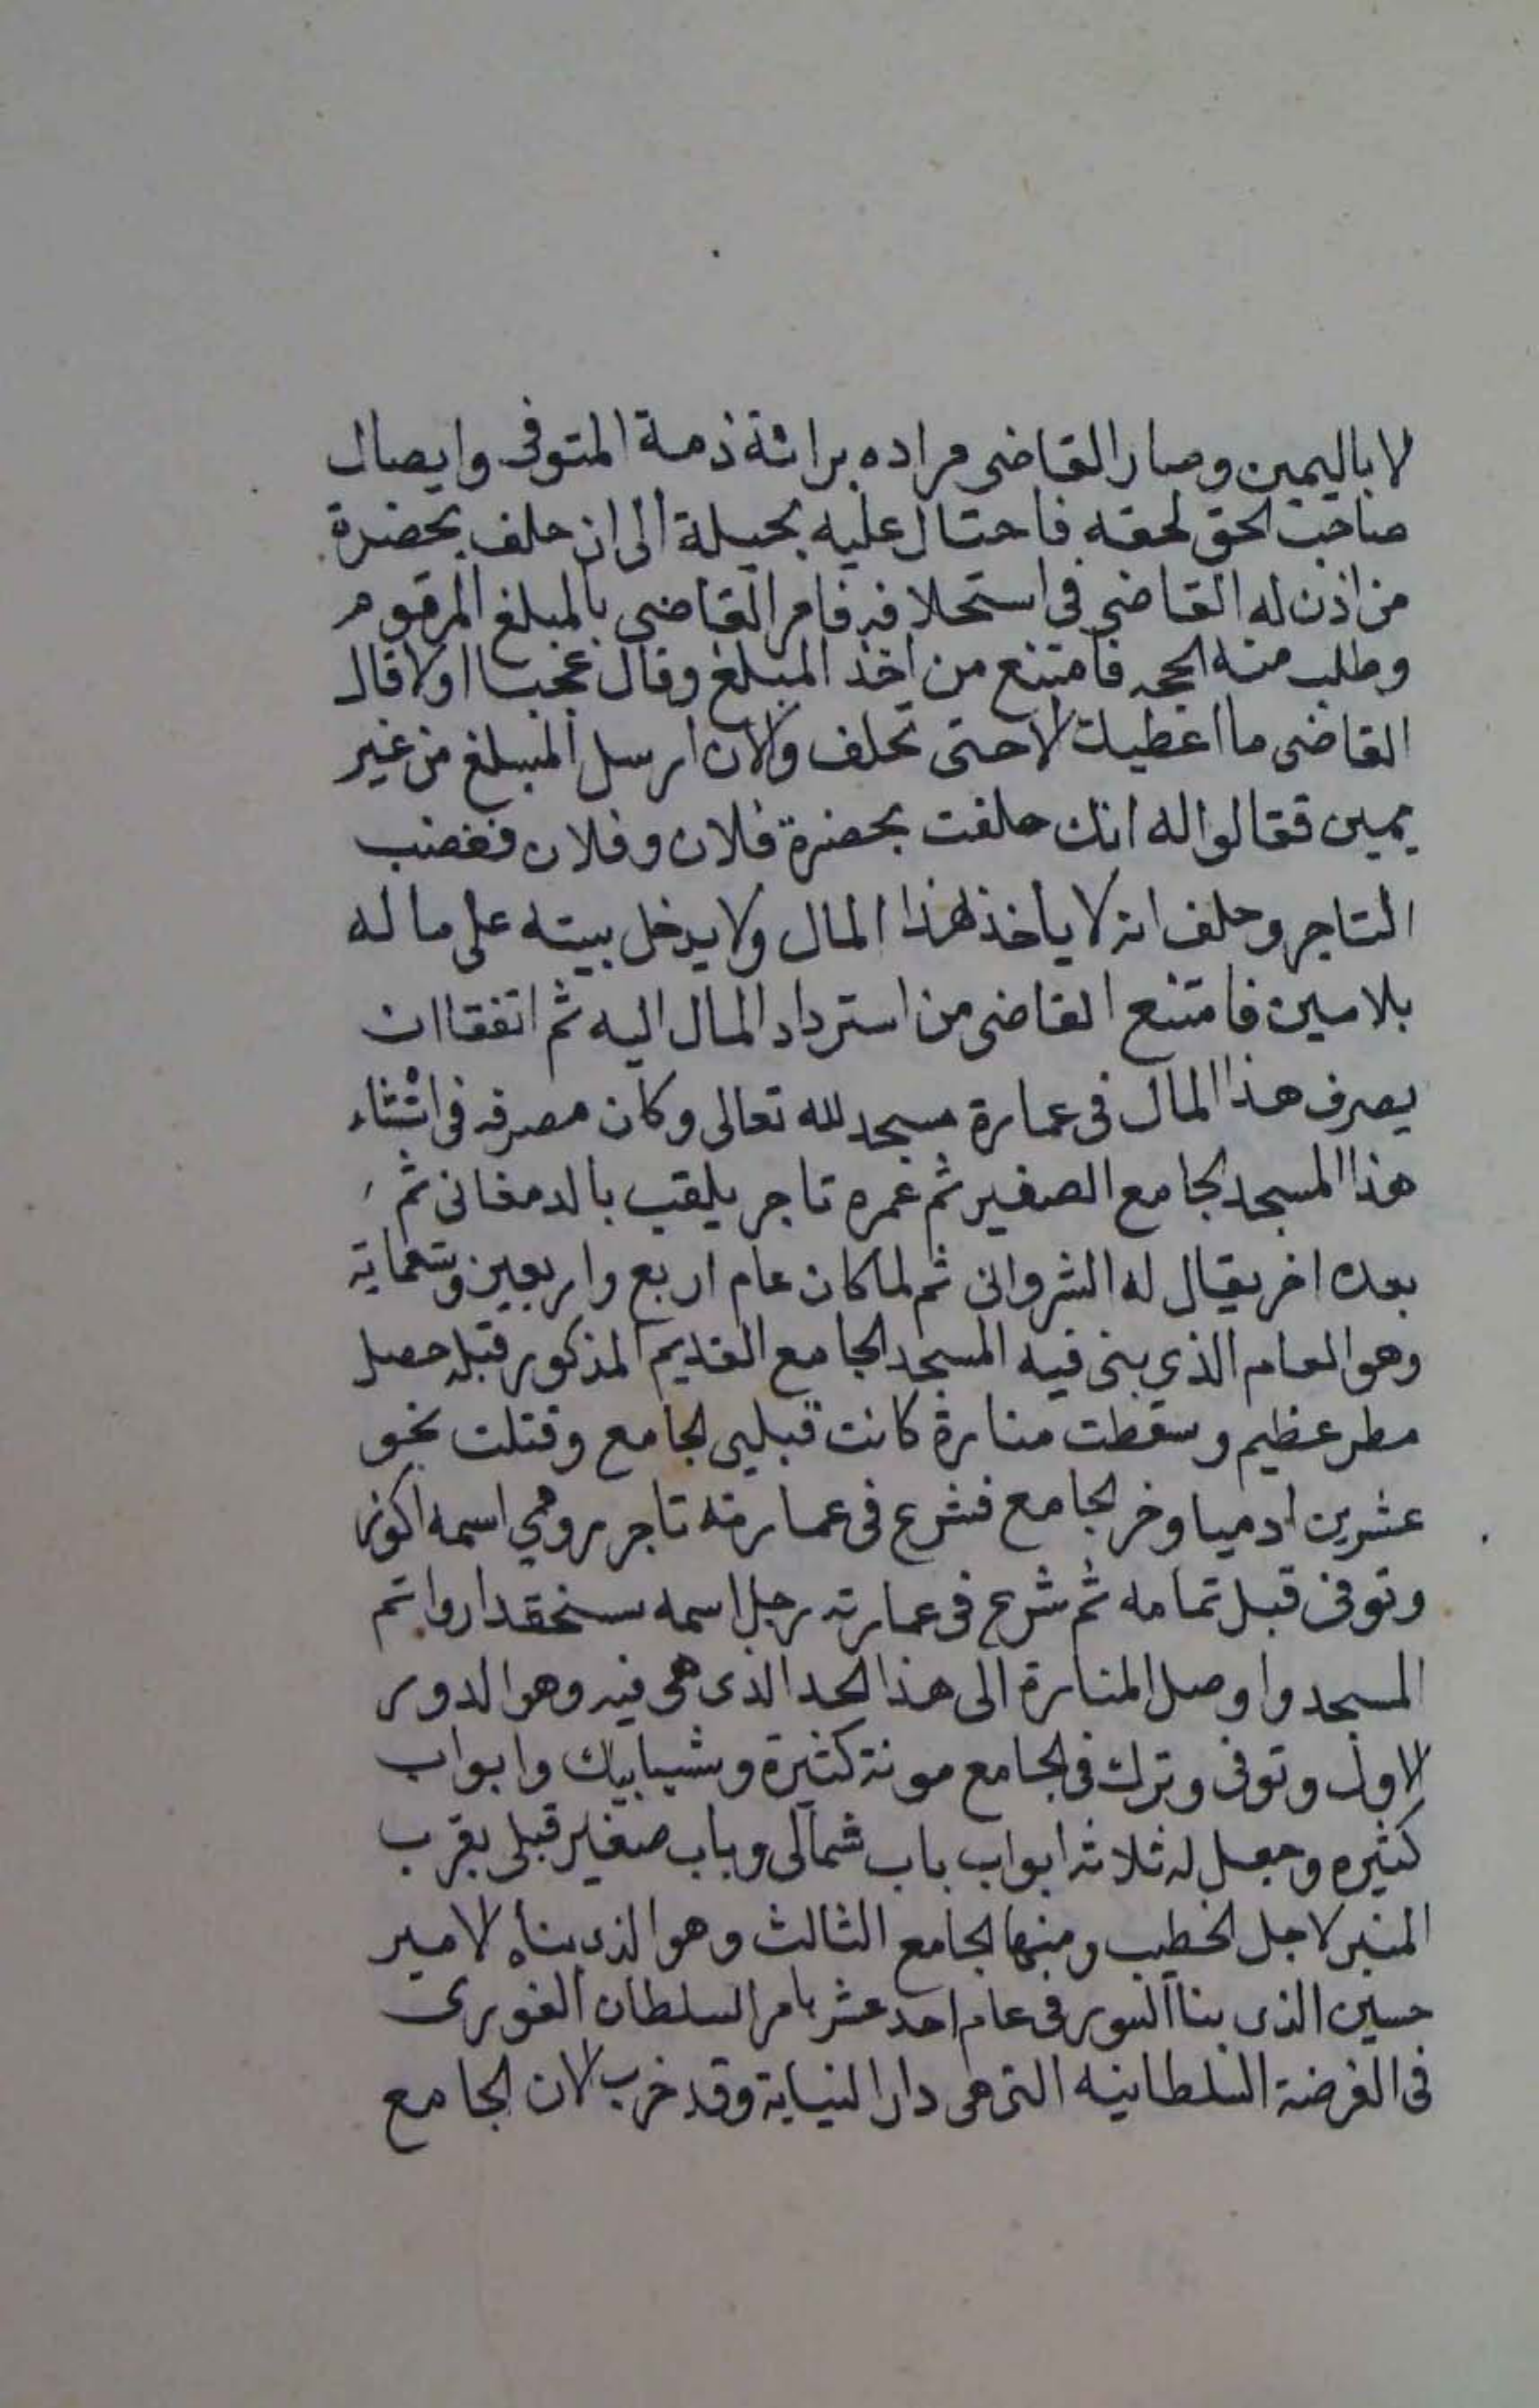 لا باليمين وصار القاضى مراده برائة ذمة المتوفى وايصال
صاحب الحق لحقه فاحتال عليه بحيلة الى ان حلف بحضرة
من اذن له القاضى فى استحلافه فامر القاضى بالمبلغ المرقوم
وطلب منه الحجه فامتنع من اخذ المبلغ وقال عجبا اولا قال
القاضى ما اعطيك الا حتى تحلف والان ارسل المبلغ من غير
يمين فقالوا له انك حلفت بحضرة فلان وفلان فغضب
التاجر وحلف انه لا ياخذ هذا المال ولا يدخل بيته على ما له
بلامين فامتنع القاضى من استرداد المال اليه ثم اتفقا ان
يصرف هذا المال فى عمارة مسجد لله تعالى وكان مصرفه فى انثاء
هذا المسجد الجامع الصغير ثم عمره تاجر يلقب بالدمغانى ثم
بعده اخر يقال له الشروانى ثم لما كان عام اربع واربعين وتسعماية
وهو العام الذى بنى فيه المسجد الجامع القديم المذكور قبله حصل
مطر عظيم وسقطت منارة كانت قبليى الجامع وقتلت نحو
عشرين ادميا وخر الجامع فشرع فى عمارته تاجر رومي اسمه اكوز
وتوفى قبل تمامه ثم شرع فى عمارته رجل اسمه سنحقدار واتم
المسجد واوصل المنارة الى هذا الحد الذى هى فيه وهو الدور
الاول وتوفى وترك فى الجامع مونة كثيرة وشبابيك وابواب
كثيره وجعل له ثلاثه ابواب باب شمالى وباب صغير قبلى بقرب
المنبر لاجل الخطيب ومنها الجامع الثالث وهو الذى بناه الامير
حسين الذى بنا السور فى عام احد عشر بامر السلطان الغورى
فى الفرضة السلطانيه التى هى دار النيابة وقد خرب الان الجامع